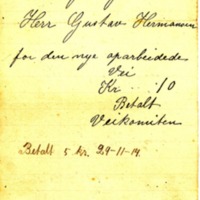 Herr Gustav Hermansen
for den nye oparbeidede
Vei
Kr. 10
Betalt
Veikomiten
Betalt 5 kr. 29-11-14.